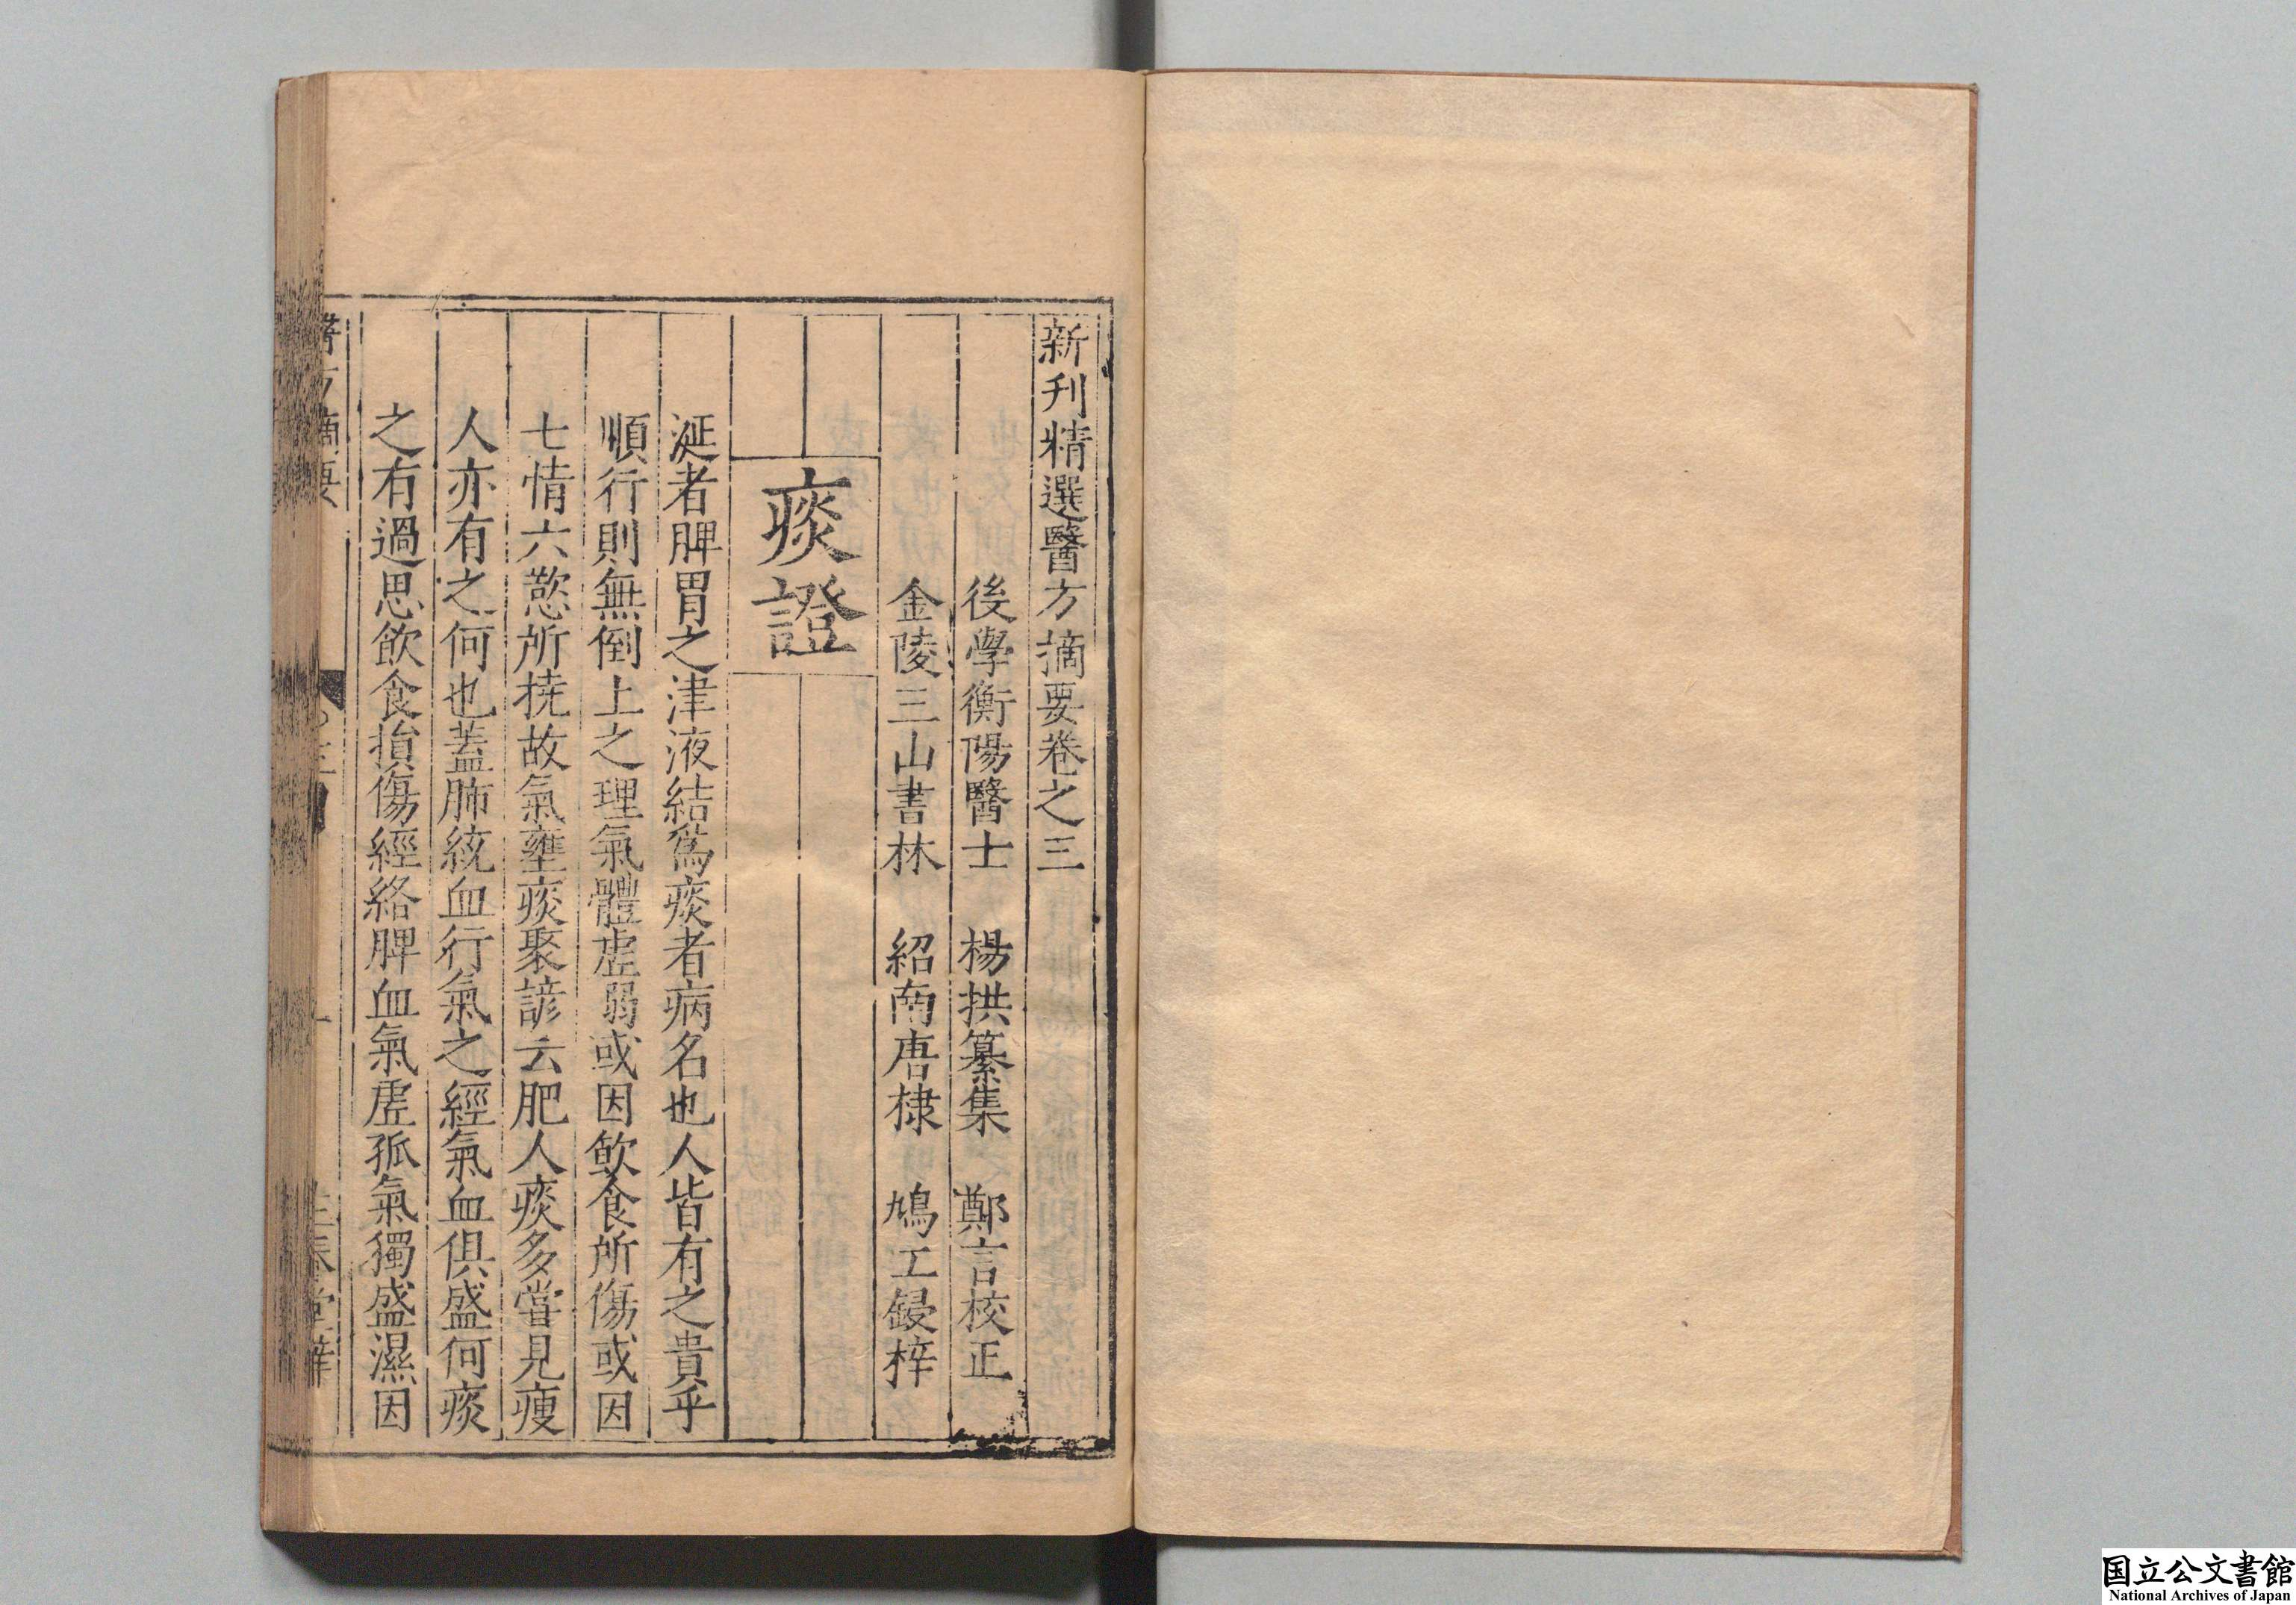 新刊精選醫方摘要卷之三
後學衡陽醫士 楊拱纂集 鄭言校正
金陵三山書林 紹南唐棣 鳩工鋟梓
痰證
涎者脾胃之津液結爲痰者病名也人皆有之貴乎
順行則無倒上之理氣體虛弱或因飲食所傷或因
七情六慾所撓故氣壅痰聚諺云肥人痰多嘗見瘦
人亦有之何也蓋肺統血行氣之經氣血俱盛何痰
之有過思飲食損傷經絡脾血氣虛孤氣獨盛濕因
醫方摘要
国立公文書館
National Archives of Japan